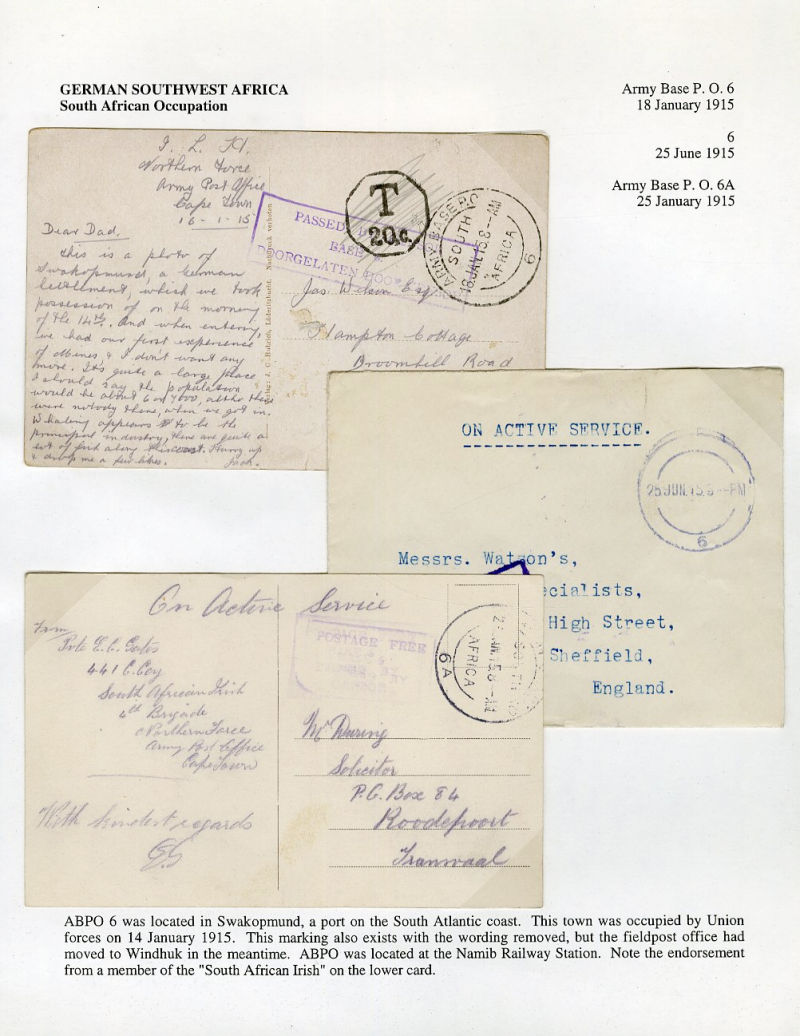 GERMAN SOUTHWEST AFRICA
South African Occupation
Army Base P. O. 6
18 January 1915
6
25 June 1915
Army Base P. O. 6A
25 January 1915
I. L. H.
Northern Force
Army Post Office
Cape Town
16-1-15
Dear Dad,
This is a photo of
Swakopmund, a German
Settlement, which we took
possession of on the morning
of the 14th. And when entering,
we had our first experience
of Mines, & I don't want any
more. It's quite a large place
I should say the population
would be about 6 or 7000, altho there
were nobody there, when we got in.
Whaling appears to be the
principal industry, there are quite a
lot of fish along this coast. Hurry up
& drop me a few lines. Jack.
J. C. Hubrich, Lüderitzbucht. Nachdruck verboten
PASSED
BASE
DOORGELATEN DOOR
T
20.c.
ARMY BASE P.O.
SOUTH AFRICA
18 JAN 15 8--AM
6
Jas Wilson Esq
Hampton Cottage
Broomhill Road
ON ACTIVE SERVICE.
25 JUN.15.9--PM
6
Messrs. Watson's,
ecialists,
High Street,
Sheffield,
England.
On Active Service
From
Pvte E. C. Gates
441 C. Coy
South African Irish
4th Brigade
Northern Force
Army Post Office
Cape Town
With kindest regards
EG
POSTAGE FREE
AFRICA
15.8--AM
6A
Mr During
Solicitor
P.O. Box 84
Roodepoort
Transvaal
ABPO 6 was located in Swakopmund, a port on the South Atlantic coast. This town was occupied by Union
forces on 14 January 1915. This marking also exists with the wording removed, but the fieldpost office had
moved to Windhuk in the meantime. ABPO was located at the Namib Railway Station. Note the endorsement
from a member of the "South African Irish" on the lower card.